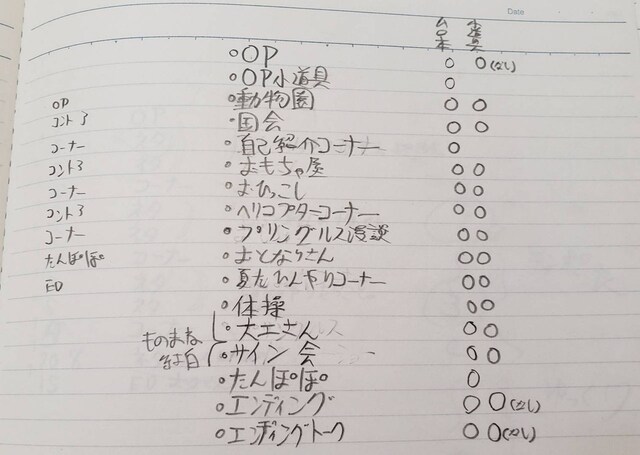 Date
台本 小道具
・OP ○ ○(なし)
・OP小道具 ○
OP ・動物園 ○ ○
コント ・国会 ○ ○
コーナー ・自己紹介コーナー ○
コント ・おもちゃ屋 ○ ○
コーナー ・おひっこし ○ ○
コント ・ヘリコプターコーナー ○ ○
コーナー ・プリングルス漫談 ○ ○
たんぽぽ ・おとなりさん ○ ○
ED ・夏だひんやりコーナー ○ ○
・体操 ○ ○
ものまね ・大工さん ○ ○
・サイン会 ○ ○
・たんぽぽ ○
・エンディング ○ ○(なし)
・エンディングトーク ○ ○(なし)